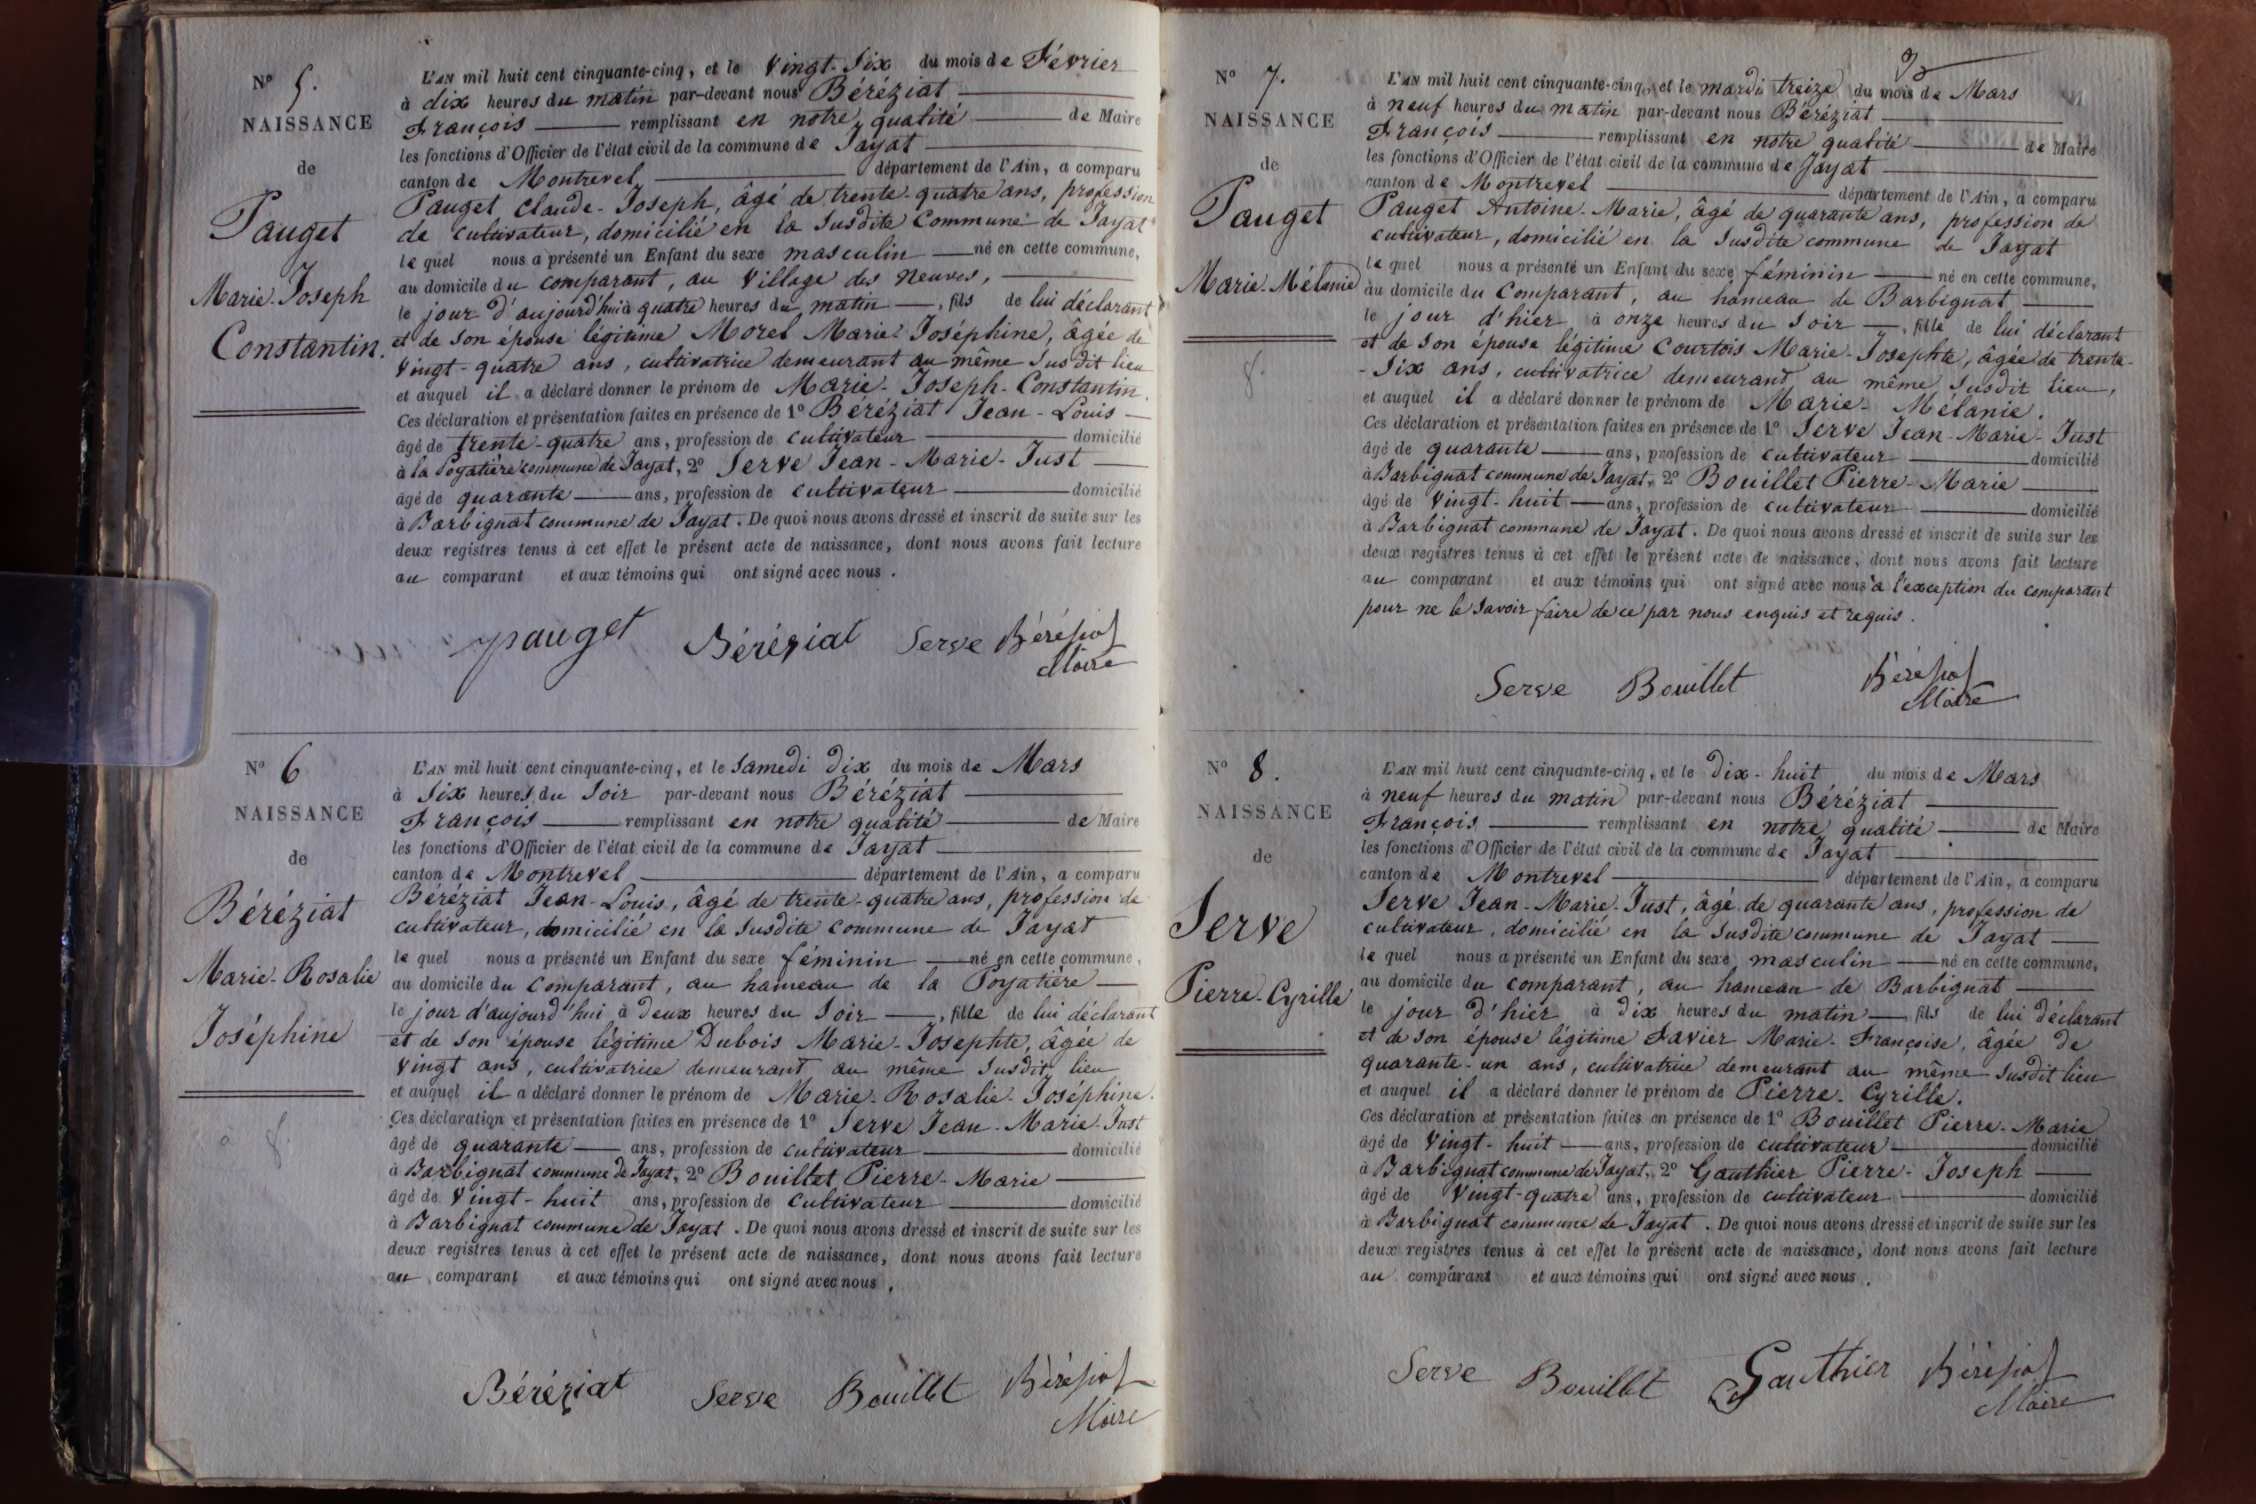 N° 5.
NAISSANCE
de
Pauget
Marie-Joseph
Constantin.
L'AN mil huit cent cinquante-cinq, et le Vingt-Six du mois de Février
à dix heures du matin par-devant nous Béréziat
François remplissant en notre qualité de Maire
les fonctions d'Officier de l'état civil de la commune de Jayat
canton de Montrevel département de l'Ain, a comparu
Pauget Claude-Joseph, âgé de trente-quatre ans, profession
de cultivateur, domicilié en la susdite Commune de Jayat
lequel nous a présenté un Enfant du sexe masculin né en cette commune,
au domicile du comparant, au Village des Neuves,
le jour d'aujourd'hui à quatre heures du matin, fils de lui déclarant
et de son épouse légitime Morel Marie-Joséphine, âgée de
Vingt-quatre ans, cultivatrice demeurant au même susdit lieu
et auquel il a déclaré donner le prénom de Marie-Joseph-Constantin.
Ces déclaration et présentation faites en présence de 1° Béréziat Jean-Louis
âgé de trente-quatre ans, profession de cultivateur domicilié
à la Poyatière commune de Jayat, 2° Serve Jean-Marie-Just
âgé de quarante ans, profession de cultivateur domicilié
à Barbignat commune de Jayat. De quoi nous avons dressé et inscrit de suite sur les
deux registres tenus à cet effet le présent acte de naissance, dont nous avons fait lecture
au comparant et aux témoins qui ont signé avec nous.
pauget Béréziat Serve Béréziat
Maire
N° 6
NAISSANCE
de
Béréziat
Marie-Rosalie
Joséphine
8.
L'AN mil huit cent cinquante-cinq, et le Samedi dix du mois de Mars
à Six heures du Soir par-devant nous Béréziat
François remplissant en notre qualité de Maire
les fonctions d'Officier de l'état civil de la commune de Jayat
canton de Montrevel département de l'Ain, a comparu
Béréziat Jean-Louis, âgé de trente-quatre ans, profession de
cultivateur, domicilié en la susdite commune de Jayat
lequel nous a présenté un Enfant du sexe féminin né en cette commune,
au domicile du comparant, au hameau de la Poyatière
le jour d'aujourd'hui à Deux heures du Soir, fille de lui déclarant
et de son épouse légitime Dubois Marie-Josephte, âgée de
Vingt ans, cultivatrice demeurant au même susdit lieu
et auquel il a déclaré donner le prénom de Marie-Rosalie-Joséphine.
Ces déclaration et présentation faites en présence de 1° Serve Jean-Marie-Just
âgé de quarante ans, profession de cultivateur domicilié
à Barbignat commune de Jayat, 2° Bouillet Pierre-Marie
âgé de Vingt-huit ans, profession de cultivateur domicilié
à Barbignat commune de Jayat. De quoi nous avons dressé et inscrit de suite sur les
deux registres tenus à cet effet le présent acte de naissance, dont nous avons fait lecture
au comparant et aux témoins qui ont signé avec nous.
Béréziat Serve Bouillet Béréziat
Maire
N° 7.
NAISSANCE
de
Pauget
Marie-Mélanie
8.
L'AN mil huit cent cinquante-cinq, et le mardi treize du mois de Mars
à neuf heures du matin par-devant nous Béréziat
François remplissant en notre qualité de Maire
les fonctions d'Officier de l'état civil de la commune de Jayat
canton de Montrevel département de l'Ain, a comparu
Pauget Antoine-Marie, âgé de quarante ans, profession de
cultivateur, domicilié en la susdite commune de Jayat
lequel nous a présenté un Enfant du sexe féminin né en cette commune,
au domicile du Comparant, au hameau de Barbignat
le jour d'hier à onze heures du Soir, fille de lui déclarant
et de son épouse légitime Courtois Marie-Josephte, âgée de trente-
-Six ans, cultivatrice demeurant au même susdit lieu,
et auquel il a déclaré donner le prénom de Marie-Mélanie.
Ces déclaration et présentation faites en présence de 1° Serve Jean-Marie-Just
âgé de quarante ans, profession de cultivateur domicilié
à Barbignat commune de Jayat, 2° Bouillet Pierre-Marie
âgé de Vingt-huit ans, profession de cultivateur domicilié
à Barbignat commune de Jayat. De quoi nous avons dressé et inscrit de suite sur les
deux registres tenus à cet effet le présent acte de naissance, dont nous avons fait lecture
au comparant et aux témoins qui ont signé avec nous à l'exception du comparant
pour ne le savoir faire de ce par nous enquis et requis.
Serve Bouillet Béréziat
Maire
N° 8.
NAISSANCE
de
Serve
Pierre-Cyrille
L'AN mil huit cent cinquante-cinq, et le Dix-huit du mois de Mars
à neuf heures du matin par-devant nous Béréziat
François remplissant en notre qualité de Maire
les fonctions d'Officier de l'état civil de la commune de Jayat
canton de Montrevel département de l'Ain, a comparu
Serve Jean-Marie-Just, âgé de quarante ans, profession de
cultivateur, domicilié en la susdite commune de Jayat
lequel nous a présenté un Enfant du sexe masculin né en cette commune,
au domicile du comparant, au hameau de Barbignat
le jour d'hier à dix heures du matin fils de lui déclarant
et de son épouse légitime Favier Marie-Françoise, âgée de
quarante-un ans, cultivatrice demeurant au même susdit lieu
et auquel il a déclaré donner le prénom de Pierre-Cyrille.
Ces déclaration et présentation faites en présence de 1° Bouillet Pierre-Marie
âgé de Vingt-huit ans, profession de cultivateur domicilié
à Barbignat commune de Jayat, 2° Gauthier Pierre-Joseph
âgé de Vingt-quatre ans, profession de cultivateur domicilié
à Barbignat commune de Jayat. De quoi nous avons dressé et inscrit de suite sur les
deux registres tenus à cet effet le présent acte de naissance, dont nous avons fait lecture
au comparant et aux témoins qui ont signé avec nous.
Serve Bouillet Gauthier Béréziat
Maire